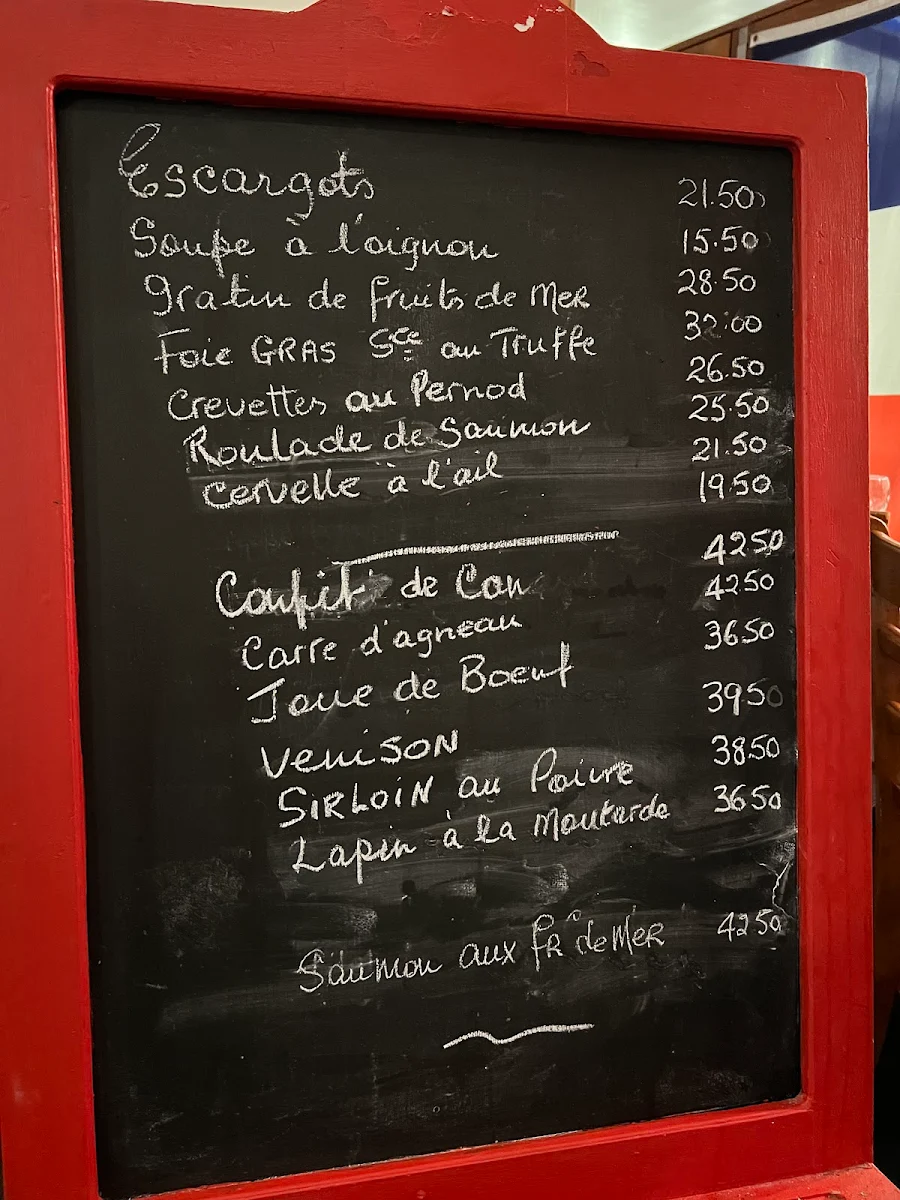 Escargots 21.50
Soupe à l'oignon 15.50
gratin de fruits de MER 28.50
Foie GRAS Sce au Truffe 32.00
Crevettes au Pernod 26.50
Roulade de Saumon 25.50
Cervelle à l'ail 21.50
19.50
Confit de Can 42.50
Carre d'agneau 42.50
Joue de Boeuf 36.50
VENISON 39.50
SIRLOIN au Poivre 38.50
Lapin à la Moutarde 36.50
Saumon aux FR de MER 42.50